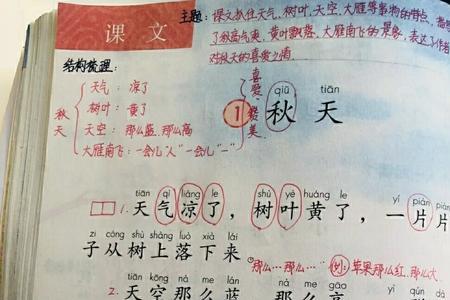 主题：课文抓住天气、树叶、天空、大雁等事物的特点，描
了秋高气爽、黄叶飘落、大雁南飞的景象，表达了作者
对秋天的喜爱之情
课文
结构梳理：
秋天
天气：凉了
树叶：黄了
天空：那么蓝、那么高
大雁南飞：一会儿"人" 一会儿"一"
喜爱、赞美
qiū tiān
1 秋天
tiān qì liáng le shù yè huáng le yí piàn piàn
1. 天气凉了，树叶黄了，一片片
zi cóng shù shàng luò xià lái
子从树上落下来
①"那么…那么…" 例：苹果那么红，那么大
tiān kōng nà me lán nà me gāo
2. 天空那么蓝，那么高